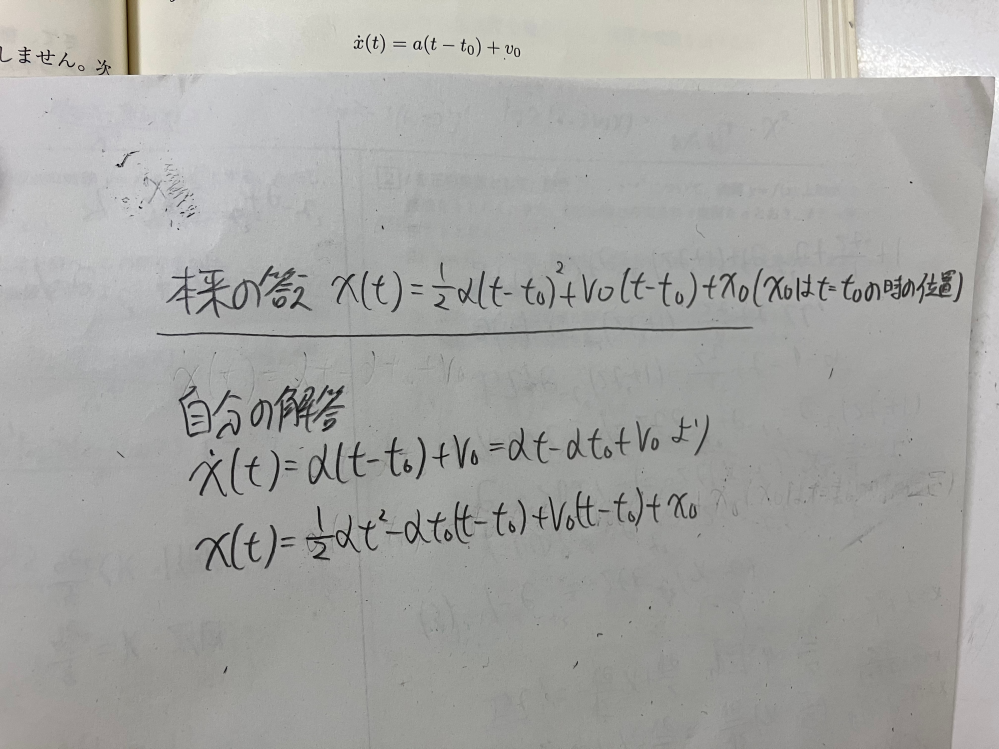 しません。次
ẋ(t) = a(t − t₀) + v₀
本来の答え x(t) = 1/2 α(t−t₀)² + v₀(t−t₀) + x₀ (x₀はt=t₀の時の位置)
自分の解答
ẋ(t) = α(t−t₀) + v₀ = αt − αt₀ + v₀ より
x(t) = 1/2 αt² − αt₀(t−t₀) + v₀(t−t₀) + x₀